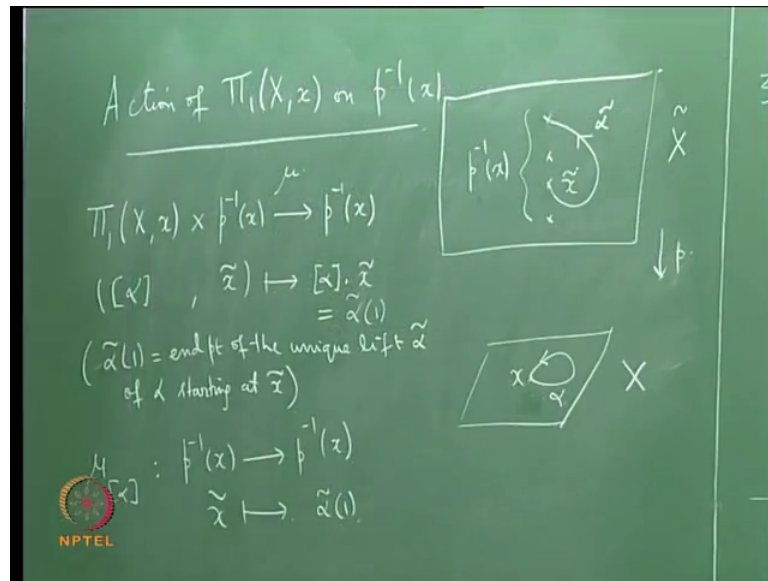 Action of Π₁(X, x) on p⁻¹(x)
Π₁(X, x) × p⁻¹(x) →^μ p⁻¹(x)
([α] , x̃) ↦ [α]·x̃
= α̃(1)
(α̃(1) = end pt of the unique lift α̃
of α starting at x̃)
μ_[α] : p⁻¹(x) ⟶ p⁻¹(x)
x̃ ↦ α̃(1)
p⁻¹(x) {
α̃
x̃
X̃
↓ p
x
α
X
NPTEL